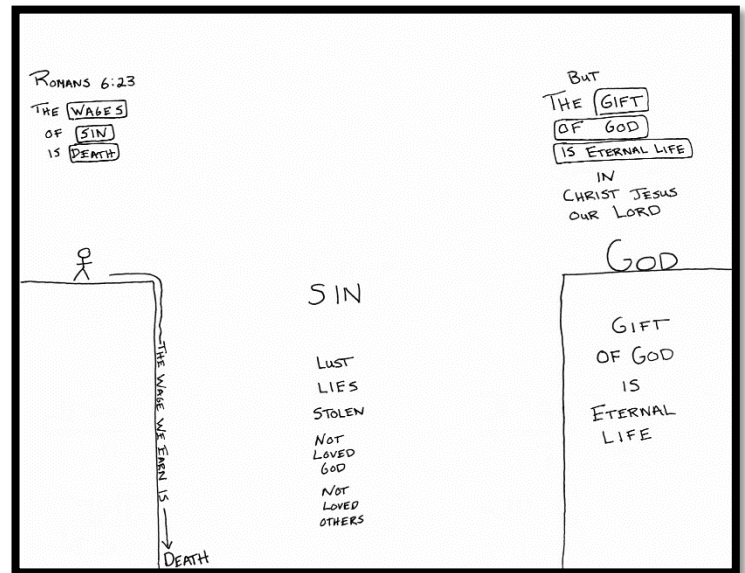 ROMANS 6:23
THE WAGES
OF SIN
IS DEATH
BUT
THE GIFT
OF GOD
IS ETERNAL LIFE
IN
CHRIST JESUS
OUR LORD
THE WAGE WE EARN IS
DEATH
SIN
LUST
LIES
STOLEN
NOT
LOVED
GOD
NOT
LOVED
OTHERS
GOD
GIFT
OF GOD
IS
ETERNAL
LIFE